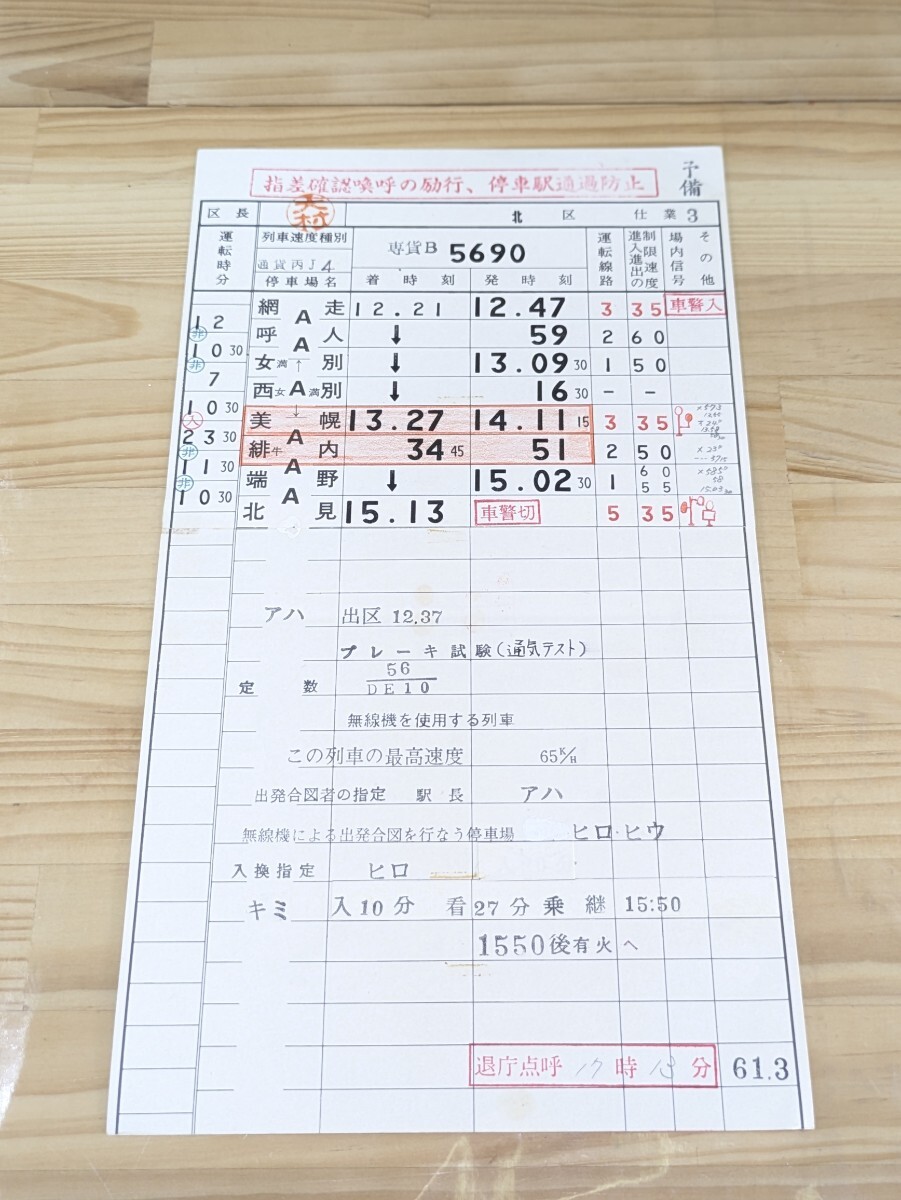 予備
指差確認喚呼の励行、停車駅通過防止
区長 大村 北区 仕業 3
運転時分 列車速度種別 通貨丙J4 専貨B 5690 運転線路 制限速度 進入進出の 場内信号 その他
停車場名 着時刻 発時刻
網走 12.21 12.47 3 35 車警入
12 A
非 呼人 ↓ 59 2 60
10 30 A
非 女満別 ↓ 13.09 30 1 50
7 ↑
西女満別 ↓ 16 30 － －
10 30 A ↓
入 美幌 13.27 14.11 15 3 35
23 30 A
非 緋牛内 34 45 51 2 50
11 30 A
非 端野 ↓ 15.02 30 1 60 55
10 30 A
北見 15.13 車警切 5 35
アハ 出区 12.37
ブレーキ試験(通気テスト)
定数 56
DE10
無線機を使用する列車
この列車の最高速度 65K/H
出発合図者の指定 駅長 アハ
無線機による出発合図を行なう停車場 ヒロ・ヒウ
入換指定 ヒロ
キミ 入10分 看27分 乗継 15:50
1550後有火へ
退庁点呼 17時13分 61.3